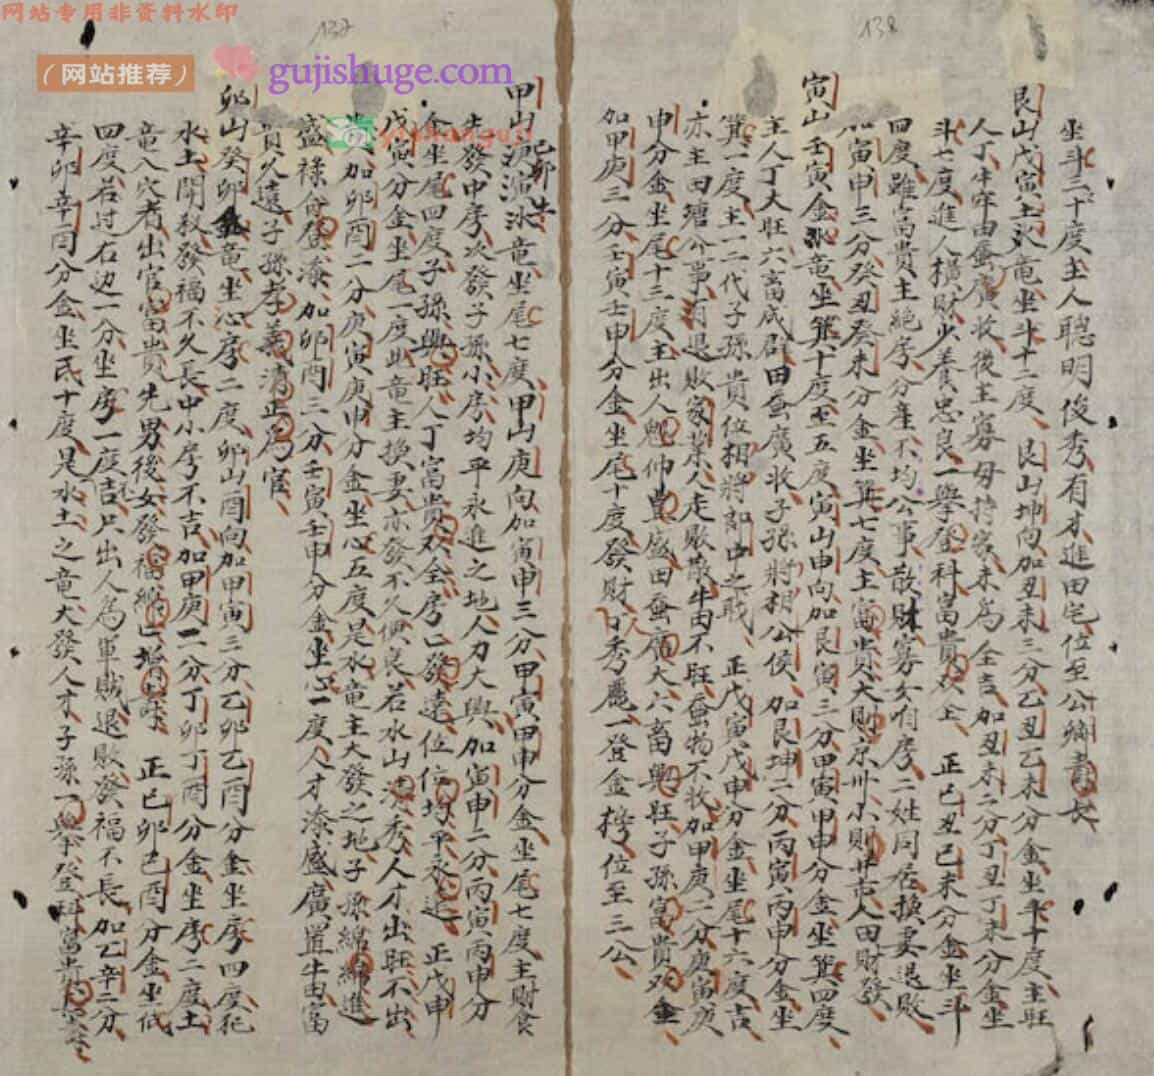 网站专用非资料水印
132
138
（网站推荐）
gujishuge.com
坐斗二十度主人聰明俊秀有才進田宅位至公卿壽長
艮山戊寅土火竜坐斗十二度艮山坤向加丑未三分乙丑乙未分金坐斗十度主旺
人丁牛牢由蚕廣收後主寡母持家未為全吉加丑未二分丁丑丁未分金坐
斗七度進人横財少養忠良一擧登科富貴双全正己丑己未分金坐斗
四度雖富貴主絶房分產不均公事散財寡女有房二姓同居換妻退敗
加寅申三分癸丑癸未分金坐箕七度主富貴大則京州小則人田財發
寅山壬寅金竜坐箕十度至五度寅山申向加艮寅三分甲寅甲申分金坐箕四度
主人丁大旺六畜成群田蚕廣收子孫將相公侯加艮坤二分丙寅丙申分金坐
箕一度主一二代子孫貴位相將部中之戝正戊寅戊申分金坐尾十六度吉
亦主田塘介事有退敗家業人走敗散牛田不旺蚕物不收加甲庚二分庚寅庚
申分金坐尾十三度主出人魁仲豊盛田蚕廣大六畜興旺子孫富貴双全
加甲庚三分壬寅壬申分金坐尾十度發財人秀麗一登金榜位至三公
甲山演派竜坐尾七度甲山庚向加寅申三分甲寅甲申分金坐尾七度主財食
先發中房次發子孫小房均平永進之地人刃大興加寅申二分丙寅丙申分
金坐尾四度子孫興旺人丁富貴双全房已發達位位均平永遠正戊申
戊寅分金坐尾一度此竜主換妻亦發不久便良若水山秀人才出旺不出
加卯酉二分庚寅庚申分金坐心五度是水竜主大發之地子孫綿綿進
盛祿位登加卯酉三分壬寅壬申分金坐心一度人才添盛廣置牛由富
貴久遠子孫孝義清正為官
卯山癸卯竜坐心房二度卯山酉向加甲寅三分乙卯乙酉分金坐房四度犯
水土開殺發福不久長中小房不吉加甲庚二分丁卯丁酉分金坐房二度土
竜入穴者出官富貴先男後女發福綿正己卯己酉分金坐低
四度若过右边一分坐房一度吉只出人為軍賊退敗發福不長加乙辛二分
辛卯辛酉分金坐氏十度是水土之竜大發人才子孫一擧登科富貴